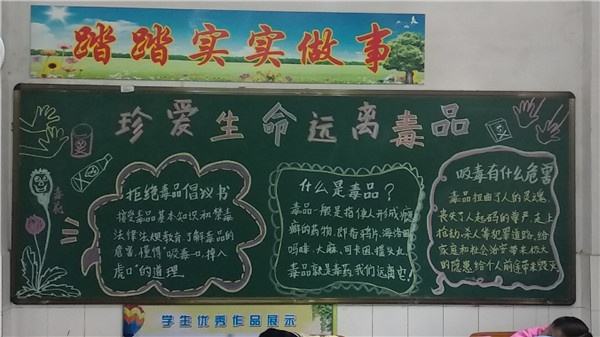 踏踏实实做事
珍爱生命远离毒品
毒药
拒绝毒品倡议书
接受毒品基本知识和禁毒
法律法规教育,了解毒品的
危害,懂得"吸毒一口,掉入
虎口"的道理
什么是毒品?
毒品一般是指使人形成瘾
癖的药物,即指鸦片、海洛因
吗啡、大麻、可卡因、摇头丸
毒品就是毒药我们远离它!
吸毒有什么危害
毒品扭曲了人的灵魂,
丧失了人起码的尊严,走上
抢劫、杀人等犯罪道路,给
家庭和社会治安带来极大
的隐患给个人前途带来毁灭
学生优秀作品展示